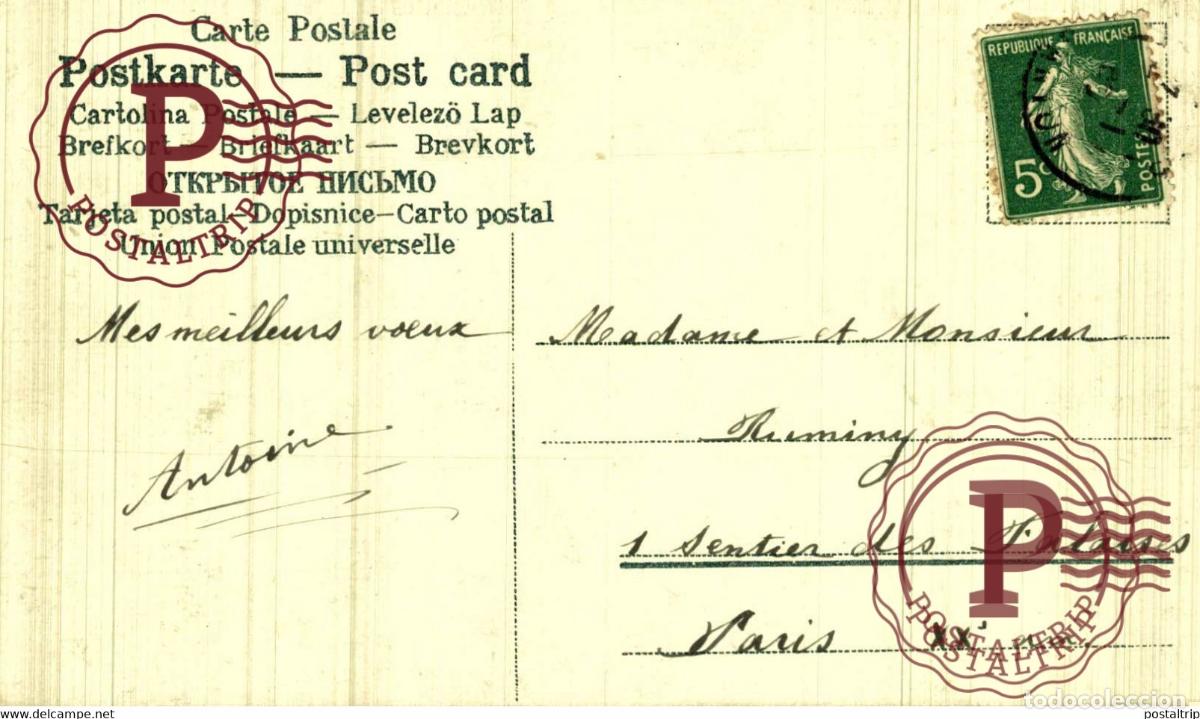 Carte Postale
Postkarte — Post card
Cartolina Postale — Levelezö Lap
Brefkort — Briefkaart — Brevkort
ОТКРЫТОЕ ПИСЬМО
Tarjeta postal-Dopisnice-Carto postal
Union Postale universelle
REPUBLIQUE FRANÇAISE
POSTES
5c
P
POSTALTRIP
Mes meilleurs voeux
Antoine
Madame et Monsieur
Ruminy
1 Sentier des
Paris XX
P
POSTALTRIP
POSTALTRIP
todocoleccion
www.delcampe.net
postaltrip